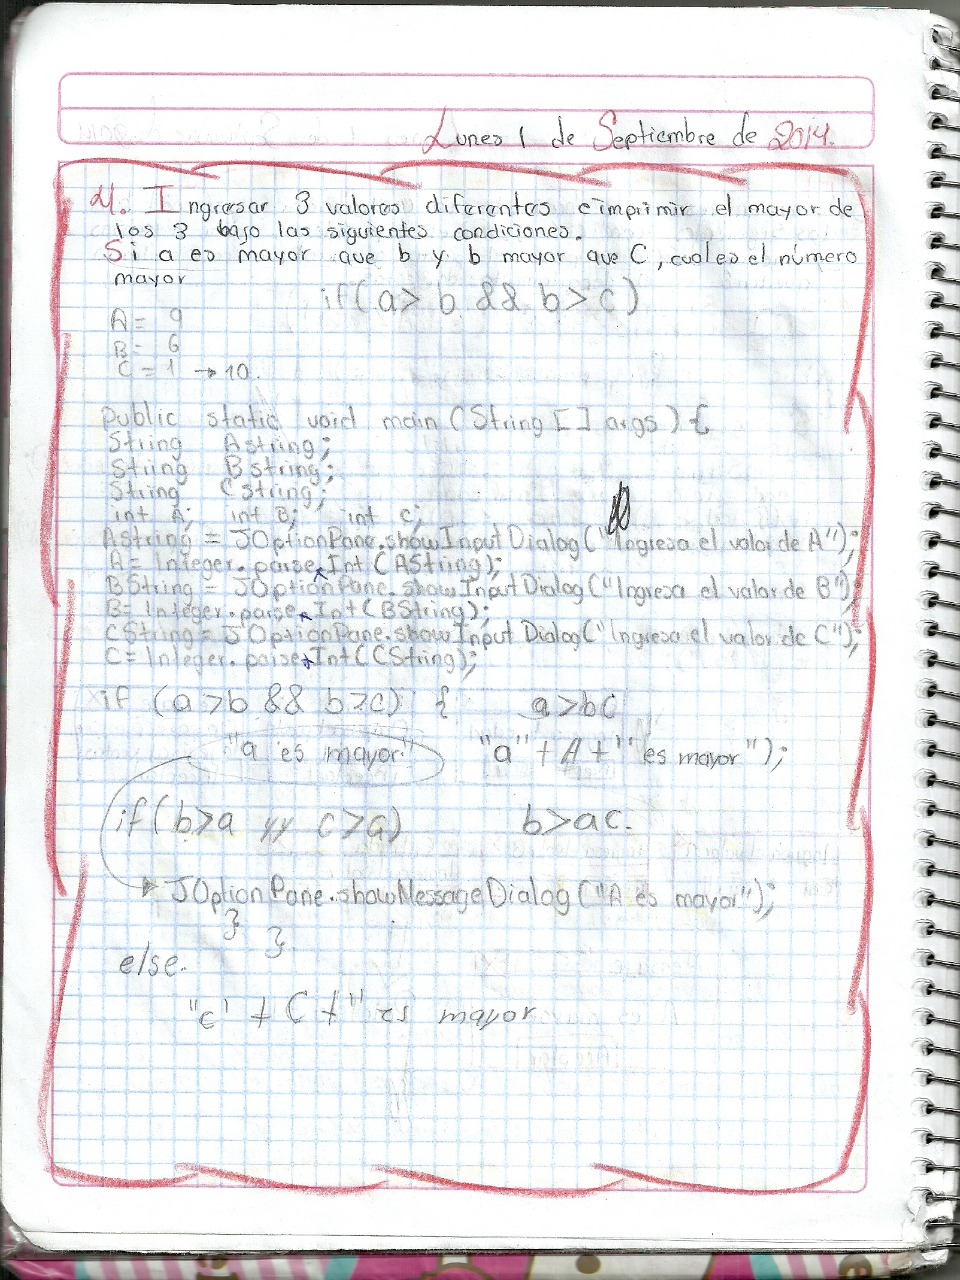 Lunes 1 de Septiembre de 2014.
4. Ingresar 3 valores diferentes e imprimir el mayor de
los 3 bajo las siguientes condiciones.
Si a es mayor que b y b mayor que C, cual es el número
mayor
if(a> b && b>c)
A= 9
B= 6
C=1 →10.
public static void main (String [] args) {
String Astring;
String Bstring;
String Cstring;
int A; int B; int c;
Astring = JOptionPane.showInputDialog("Ingresa el valor de A");
A= Integer.parse Int (AString);
BString = JOptionPane.showInputDialog("Ingresa el valor de B");
B= Integer.parse Int(BString);
CString= JOptionPane.showInput Dialog("Ingresa el valor de C");
C= Integer.parse Int(CString);
if (a>b && b>c) { a>bc
"a es mayor" "a"+A+" es mayor");
if(b>a c>a) b>ac.
JOptionPane.showMessageDialog("A es mayor");
}
}
else.
"c'+C+" es mayor